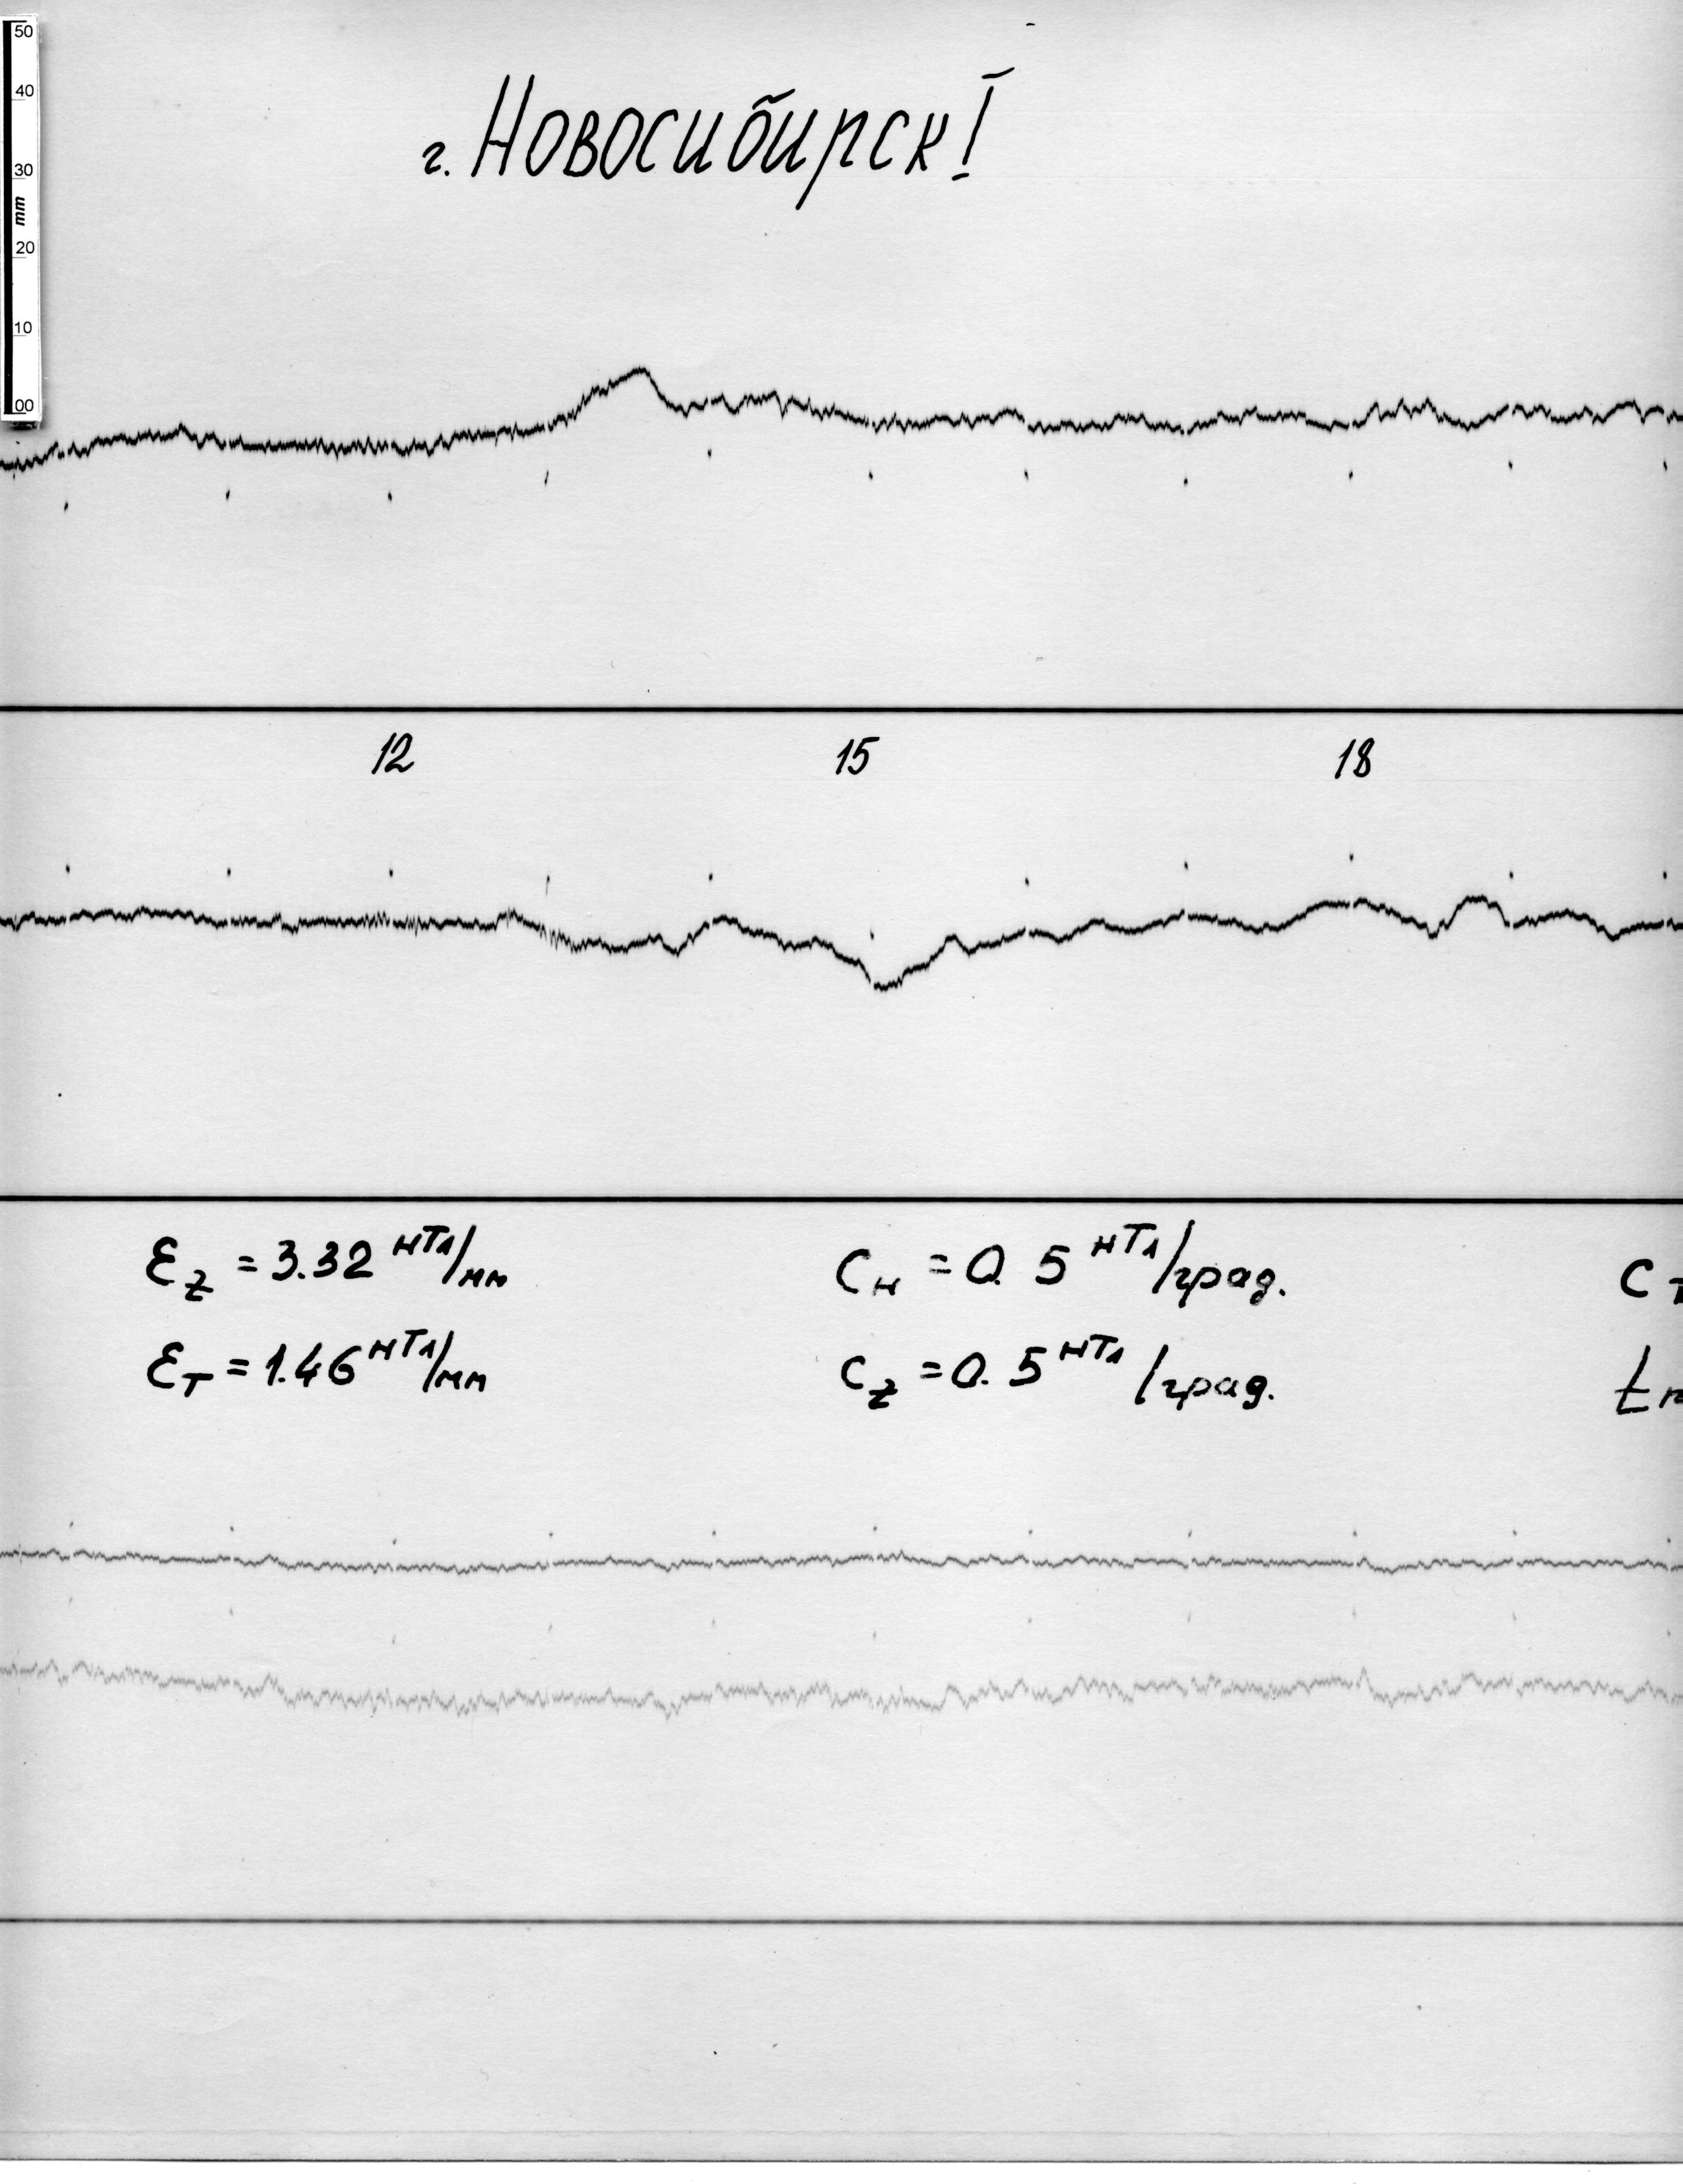 50
40
30
mm
20
10
00
г. Новосибирск!
12 15 18
Ɛz = 3.32 нТл/мм Cн = 0.5 нТл/град. C
Ɛт = 1.46 нТл/мм Cz = 0.5 нТл/град. t